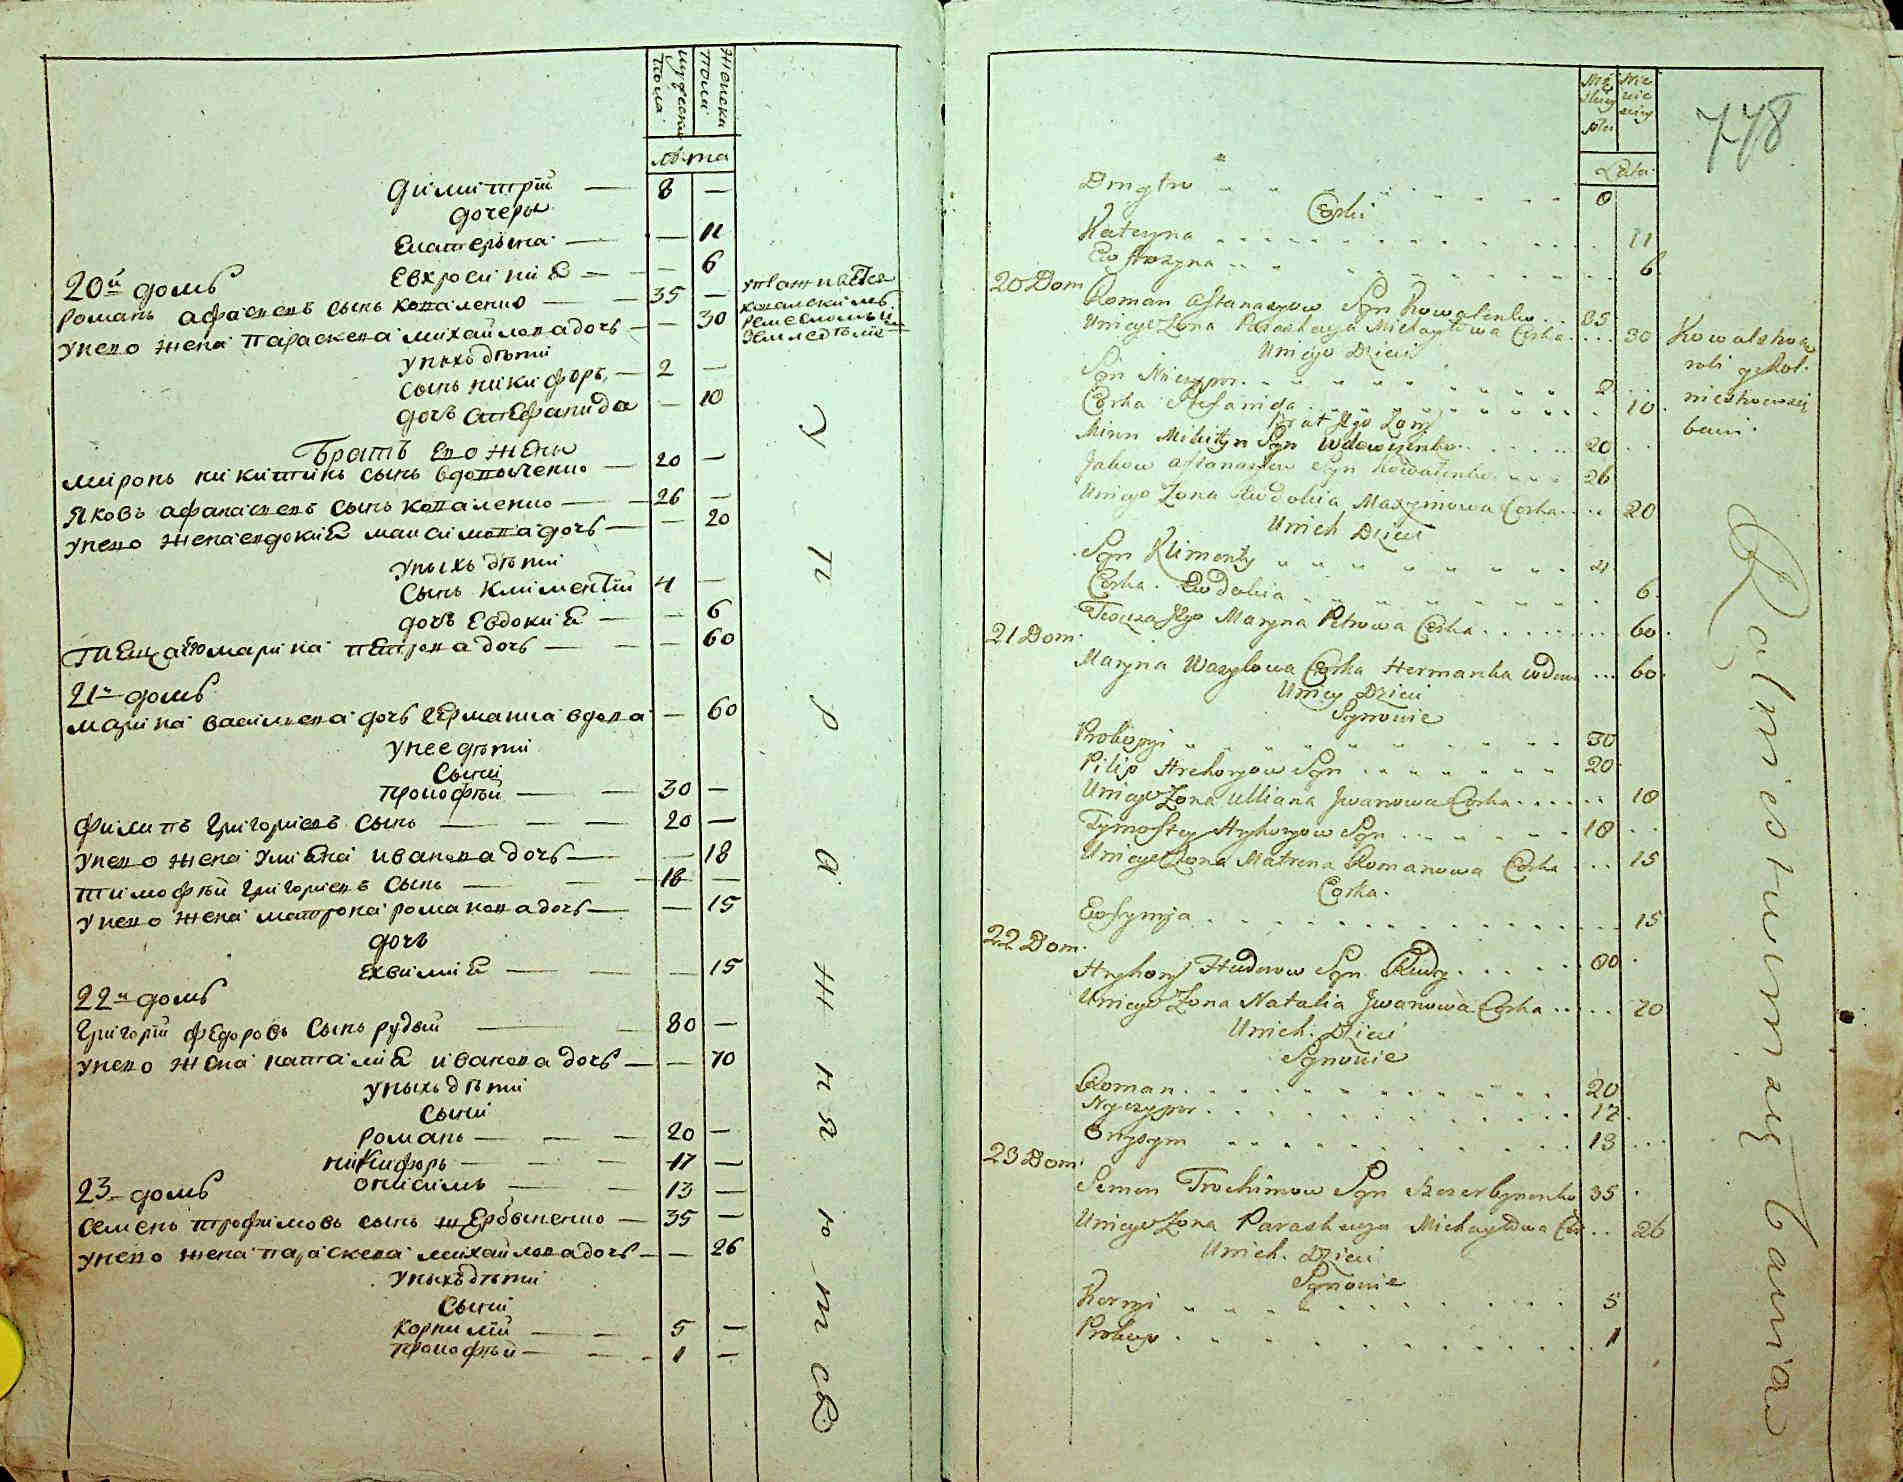 мужеска пола
женска пола
лѣта
димитрій — 8 —
дочеры
Екатерына — — 11
Евхросинія — — 6
20й домъ
романъ афанасіевъ сынъ коваленко — 35 —
у него жена параскева михайлова дочь — — 30
у ныхъ дѣти
сынъ никифоръ — 2 —
дочь стефанида — 10
Братъ его жены
миронъ никитинъ сынъ вдовыченко — 20 —
яковъ афанасіевъ сынъ коваленко — 26 —
у него жена евдокія максимова дочь — — 20
у ныхъ дѣти
сынъ климентій 4 —
дочь Евдокия — — 6
тпеща его марина петрова дочь — — 60
21й домъ
марина василіева дочь германка вдова — 60
у нее дѣти
сыни
прокофій — 30 —
филипъ григоріевъ сынъ — 20 —
у него жена улияна иванова дочь — — 18
тимофѣй григоріевъ сынъ — 18 —
у него жена матрона романова дочь — — 15
дочь
ехвимия — — 15
22й домъ
григорій федоровъ сынъ рудый — 80 —
у него жена наталия иванова дочь — — 70
у ныхъ дѣти
сыни
романъ — 20 —
никифоръ — 17 —
онисимъ — 13 —
23 домъ
семенъ трофимовъ сынъ щербыненко — 35 —
у него жена параскева михайлова дочь — — 26
у ныхъ дѣти
сыни
корнилій — 5 —
прокофій — 1 —
ковалскимъ
ремесломъ и
у п р а ж н я ю т с я
778
Lata
Dmytro 8
Corki
Kateryna 11
Ewfrozyna 6
20 Dom
Roman Afanasyow Syn Kowalenko 35
Uniego Zona Paraskewja Michayłowa Corka 30
Uniego Dzieci
Syn Niczypor 2
Corka Stefanida 10
Brat Jego Zony
Miron Mikityn Syn Wdowyczenko 20
Jakow Afanasyow Syn Kowalenko 26
Uniego Zona Ewdokia Maxymowa Corka 20
Unich Dzieci
Syn Klimenty 4
Corka Ewdokia 6
Teszcza Jego Maryna Petrowa Corka 60
21 Dom
Maryna Wasylowa Corka Hermanka wdowa 60
Uniey Dzieci
Synowie
Prokopyi 30
Pilip Hrehoryow Syn 20
Uniego Zona Ulliana Jwanowa Corka 18
Tymofiey Hryhoryow Syn 18
Uniego Zona Matrena Romanowa Corka 15
Corka
Ewfymja 15
22 Dom
Hryhory Fiedorow Syn Rudy 80
Uniego Zona Natalia Jwanowa Corka 70
Unich Dzieci
Synowie
Roman 20
Nyczypor 17
Onysym 13
23 Dom
Semen Trochimow Syn Szczerbynenko 35
Uniego Zona Paraskewja Michayłowa Cor 26
Unich Dzieci
Synowie
Kornyi 5
Prokop 1
Rolnictwem się bawią